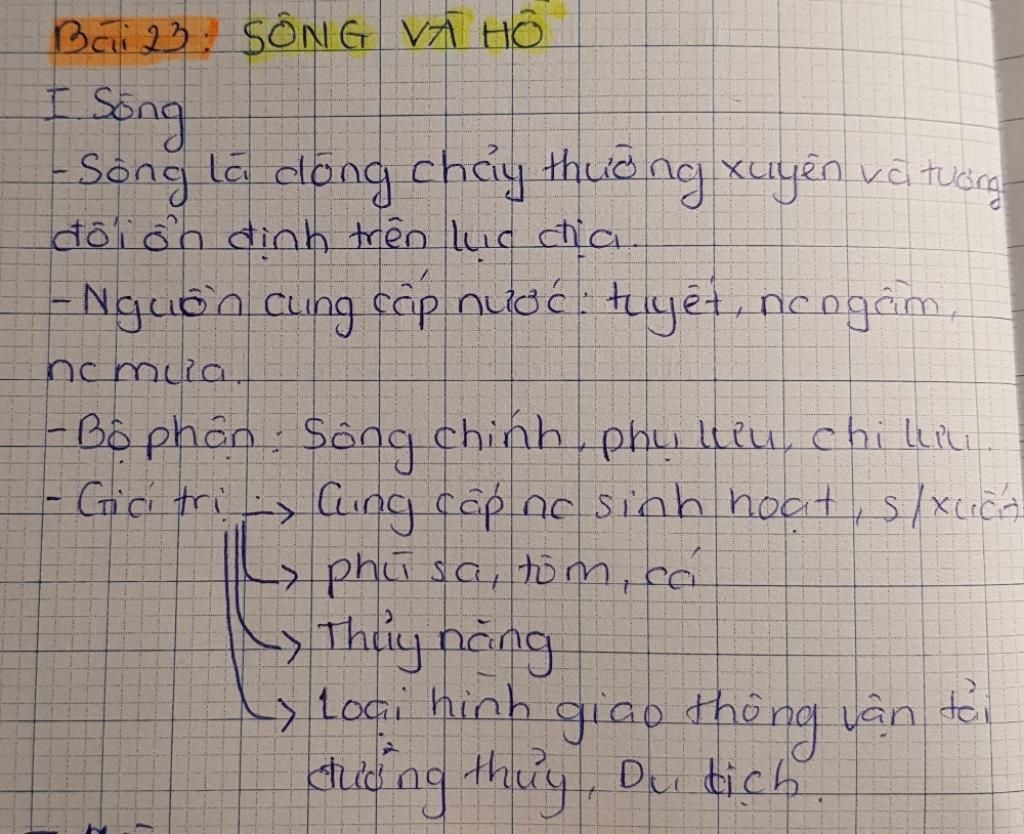 Bài 23: SÔNG VÀ HỒ
I. Sông
- Sông là dòng chảy thường xuyên và tương
đối ổn định trên lục địa.
- Nguồn cung cấp nước: tuyết, nc ngầm,
nc mưa.
- Bộ phận: Sông chính, phụ lưu, chi lưu.
- Giá trị: → Cung cấp nc sinh hoạt, s/xuất
→ phù sa, tôm, cá
→ Thủy năng
→ Loại hình giao thông vận tải
đường thủy, Du lịch.